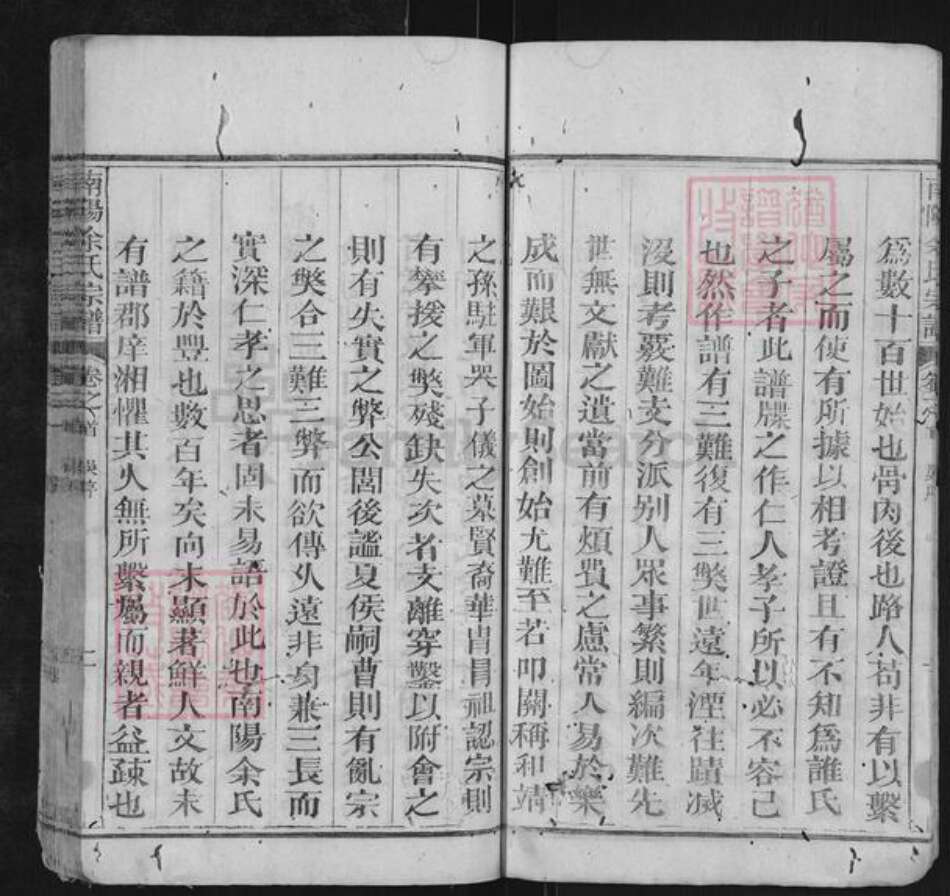 爲數十百世始也骨肉後也路人苟非有以繫
屬之而使有所據以相考證且有不知爲誰氏
之子者此譜牒之作仁人孝子所以必不容已
也然作譜有三難復有三獘世遠年湮往蹟滅
沒則考覈難支分派别人眾事繁則編次難先
世無文獻之遺當前有煩費之慮常人易於樂
成而艱於圖始則創始尤難至若叩關稱和靖
之孫駐軍哭子儀之墓賢裔華冑冒祖認宗則
有攀援之獘殘缺失次者支離穿鑿以附會之
則有失實之弊公閭後謐夏侯嗣曹則有亂宗
之獘合三難三弊而欲傳乆遠非匃兼三長而
實深仁孝之思者固未易語於此也南陽余氏
之籍於豐也數百年矣向未顯著鮮人文故未
有譜郡庠湘懼其乆無所繫屬而親者益疎也
南陽余氏宗譜 卷之 譜 吳序 二